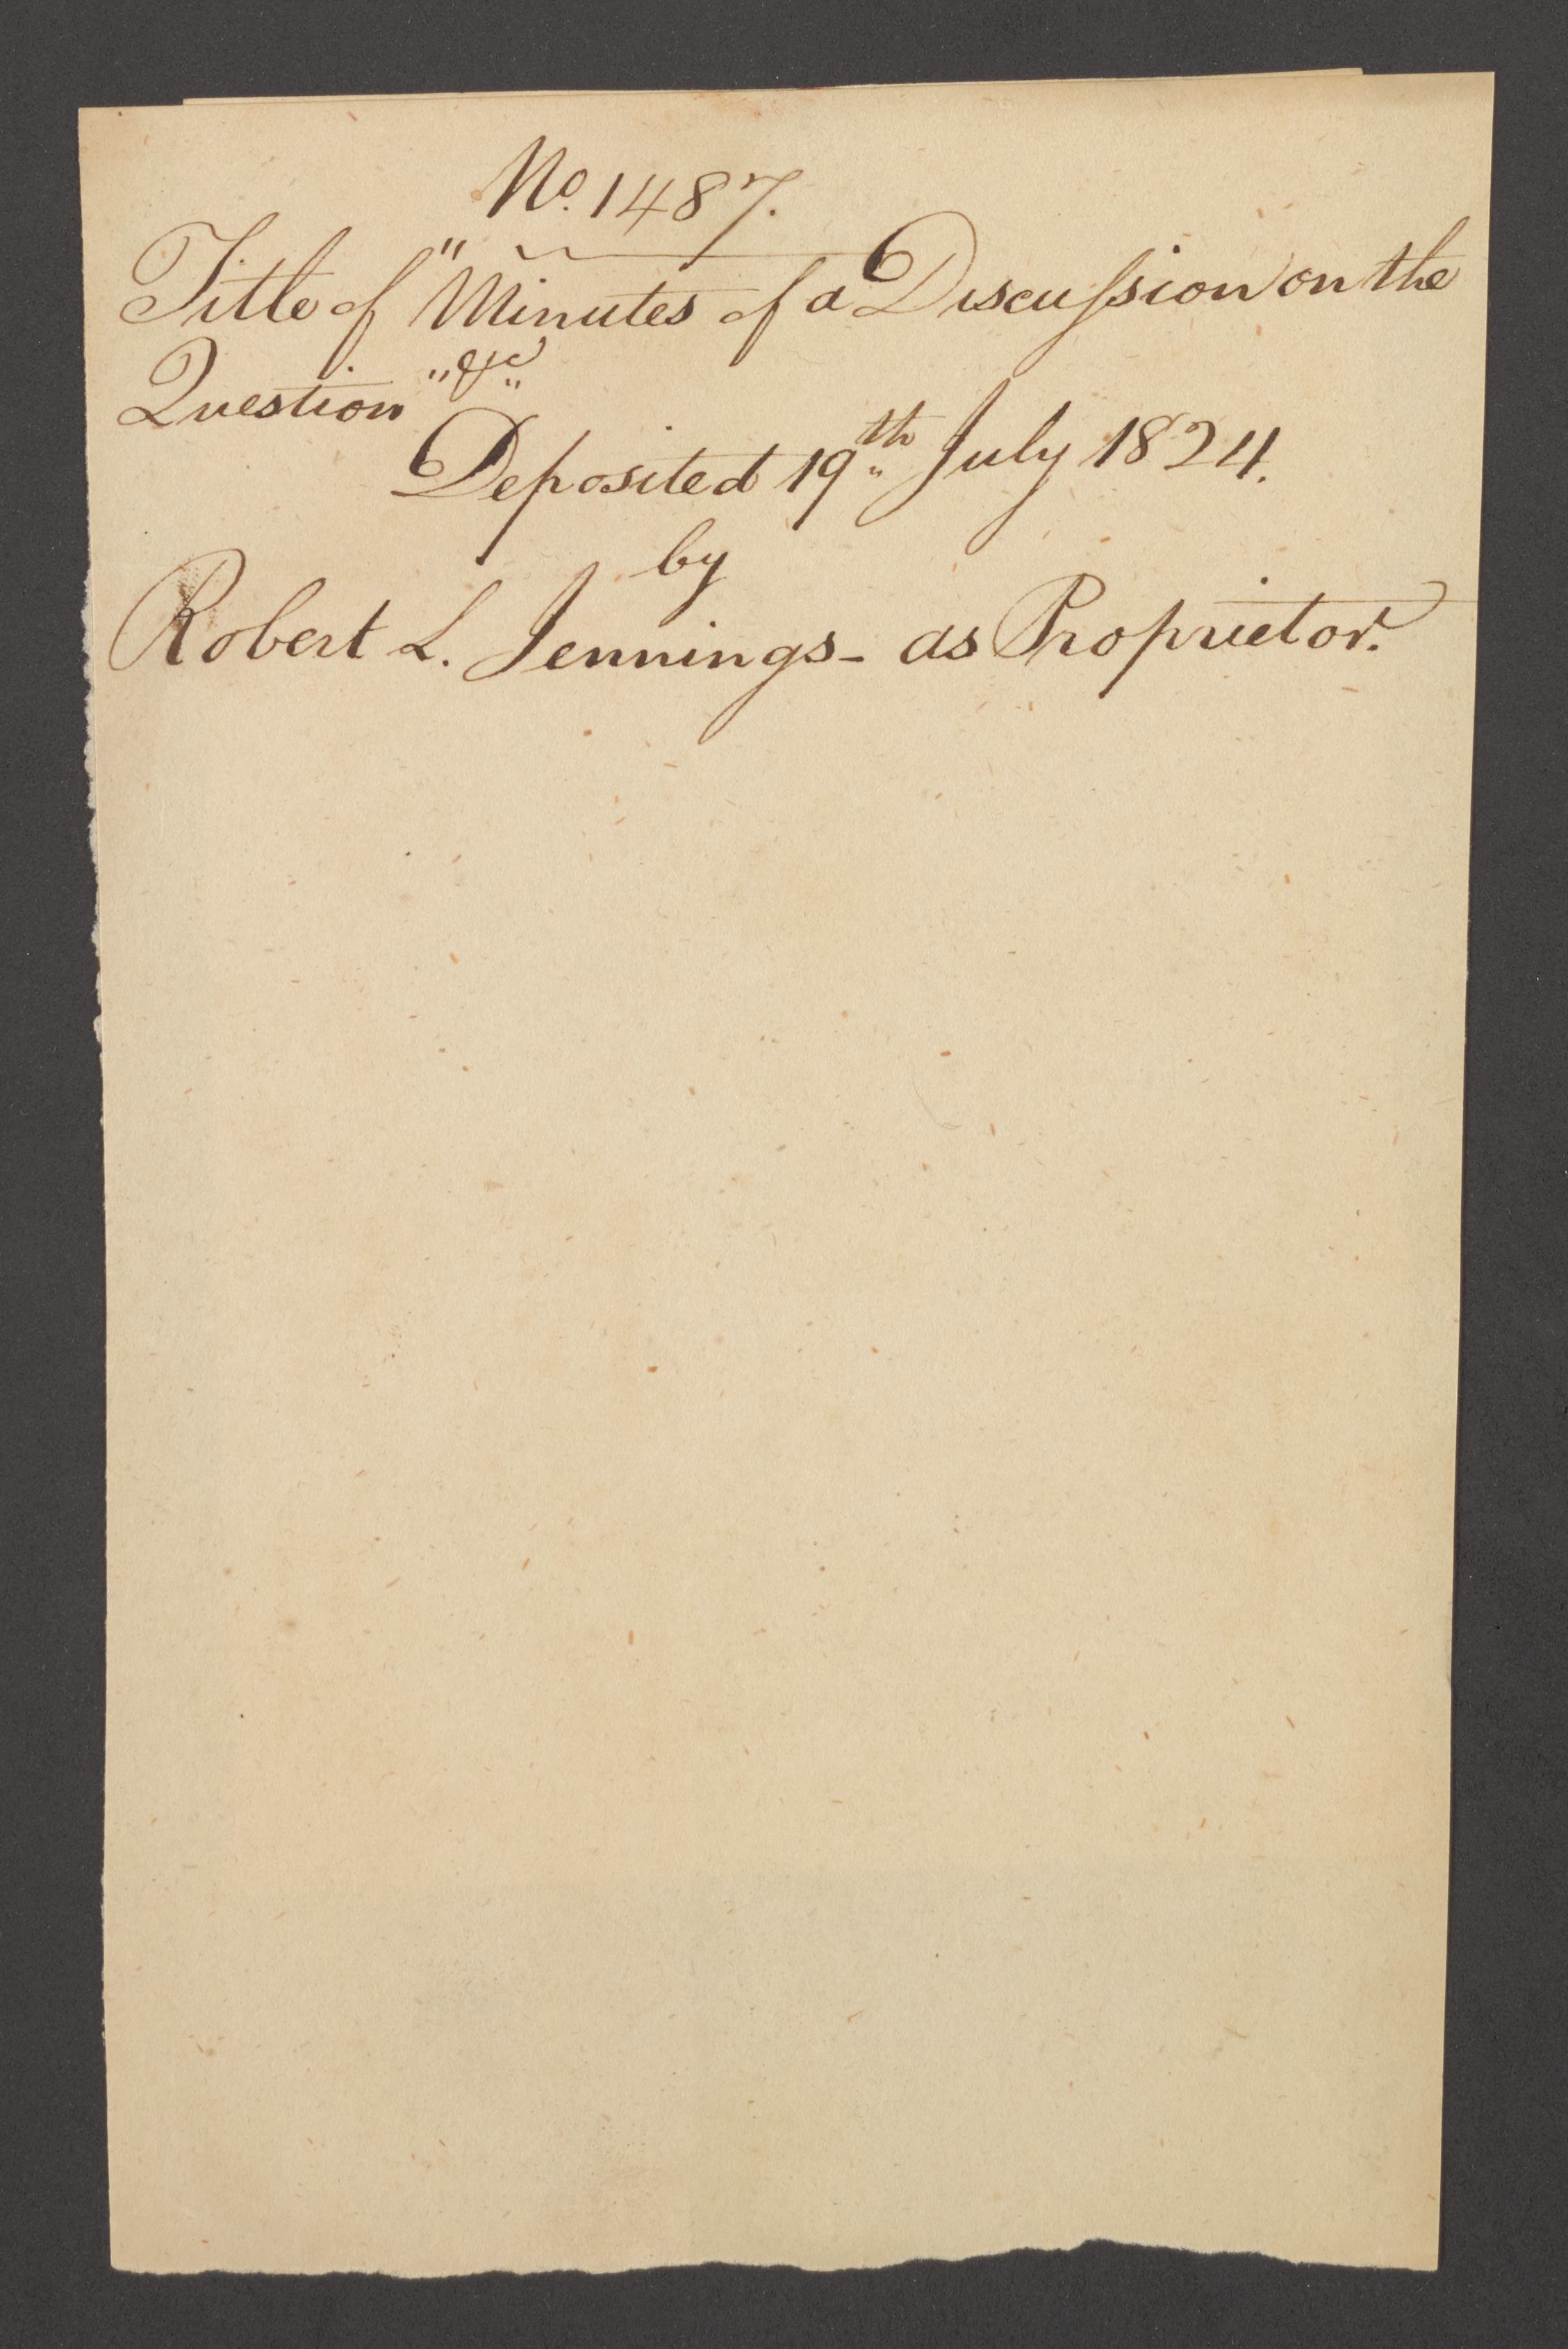 No. 1487.
Title of "Minutes of a Discuſsion on the
Question" &c"
Deposited 19th July 1824.
by
Robert L. Jennings - as Proprietor.